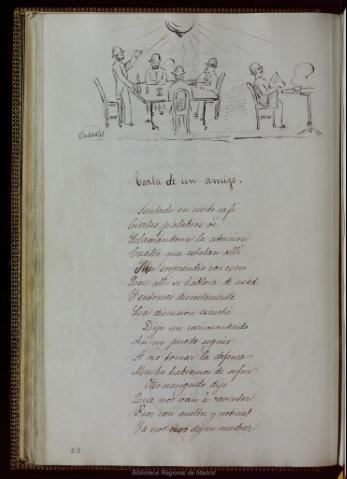 Carta de un amigo.
Sentado en cierto café
Ciertas palabras oí
Llamándome la atención
Cuatro que estaban allí
Me sorprendió con
Que allí se hablara de usted
Y entonces discretamente
La discusión escuché
Dijo un
Así no puede seguir
A no tomar la defensa
Mucho habremos de sufrir
dijo
Que nos van á reventar
Pues con sueltos y noticias
Ya nos dejan
Biblioteca Regional de Madrid